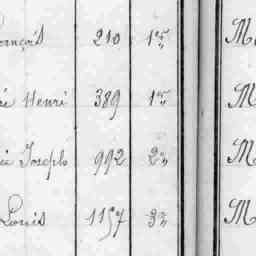 ançois 210 1er M
é Henri 389 1er M
ie Joseph 992 2e M
Louis 1157 3e M